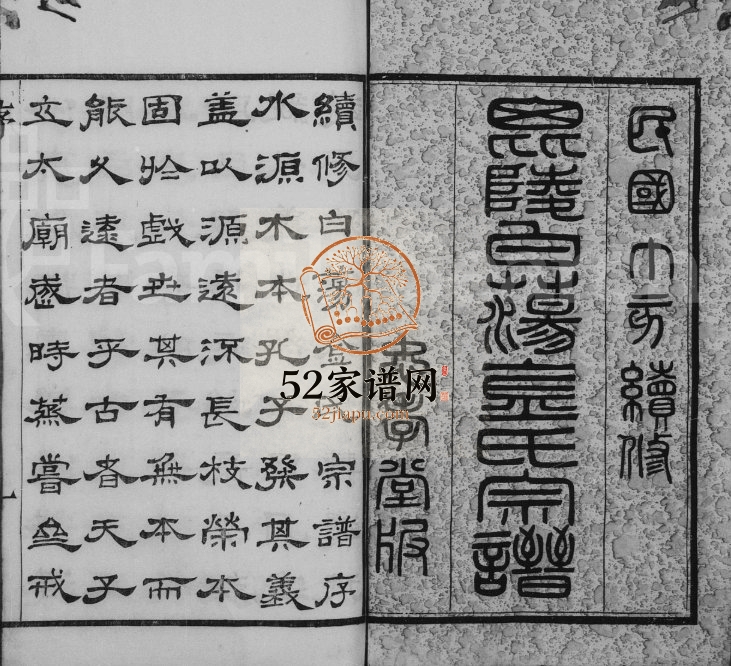 民國十續修
毘陵白蕩氏宗譜
孝堂版
續修白蕩宗譜序
水源木本孔子發其義
蓋以源遠深長枝榮本
固於戲世其有無本而
能久遠者乎古者天子
立太廟歲時蒸嘗垂戒
序
一
52家谱网
52jiapu.com